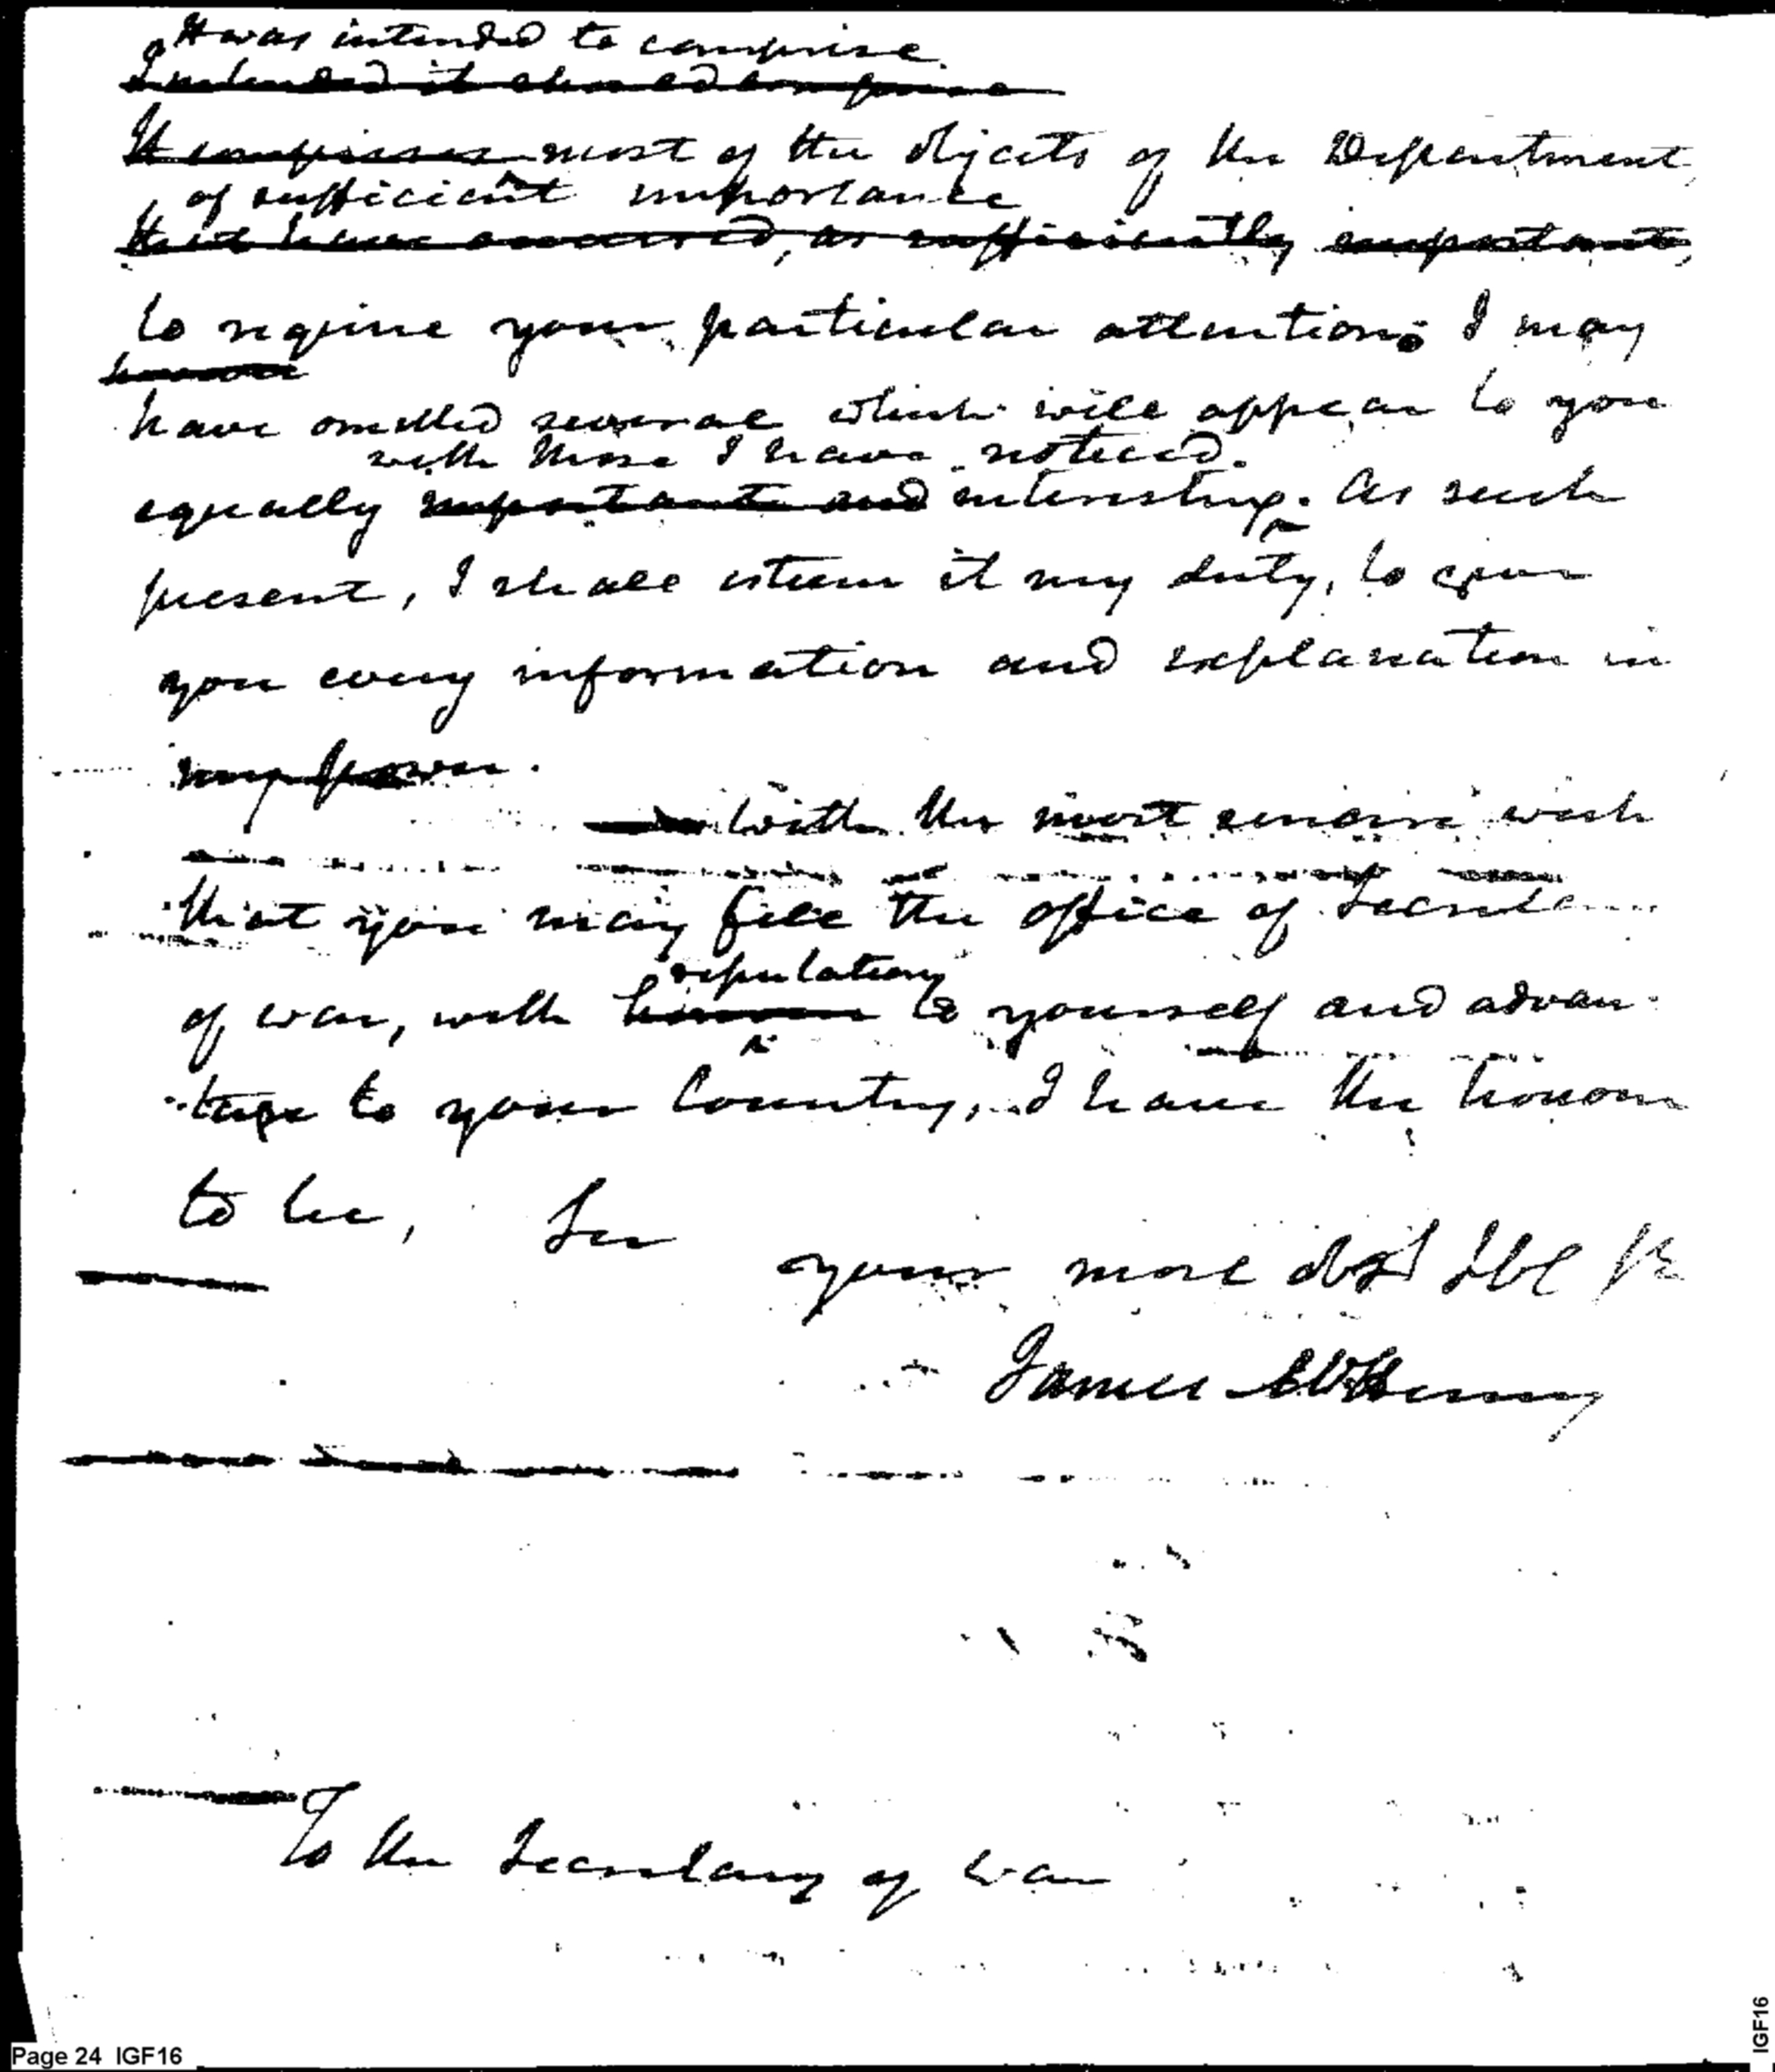 It was intended to comprise
I intended it should comprise
It comprises most of the objects of the Department,
of sufficient importance
that have occurred, as sufficiently important,
to require your particular attention; I may
however
have omitted several which will appear to you
with those I have noticed.
equally important and interesting. As such
present, I shall esteem it my duty, to give
you every information and explanation in
my power.
With the most sincere wish
that you may fill the office of Secreta
of war, with honour to yourself and advan-
reputation
tage to your Country, I have the honour
to be, Sir
your most obt
James McHenry
To the Secretary of War
Page 24 IGF16
IGF16